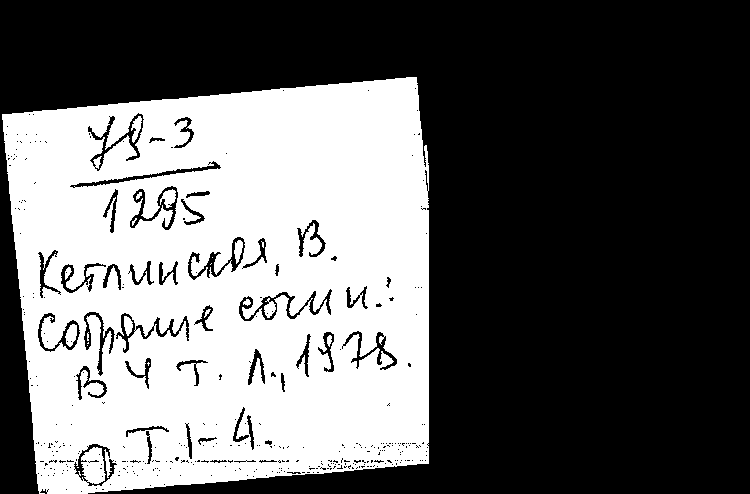 79-3
1295
Кетлинская, В.
Собрание сочин.:
в 4 т. Л., 1978.
Т.1-4.